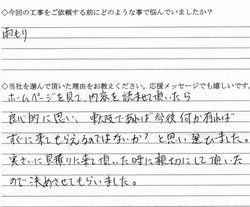 ◇今回の工事をご依頼する前にどのような事で悩んでいましたか?
雨もり
◇当社を選んで頂いた理由をお教えください。応援メッセージでも嬉しいです。
ホームページを見て、内容を読ませて頂いたら
良心的に思い、東阪であれば今後何か有れば
すぐに来てもらえるのではないか?と思い選びました。
実さいに見積りに来て頂いた時に親切にして頂いた
ので決めさせてもらいました。